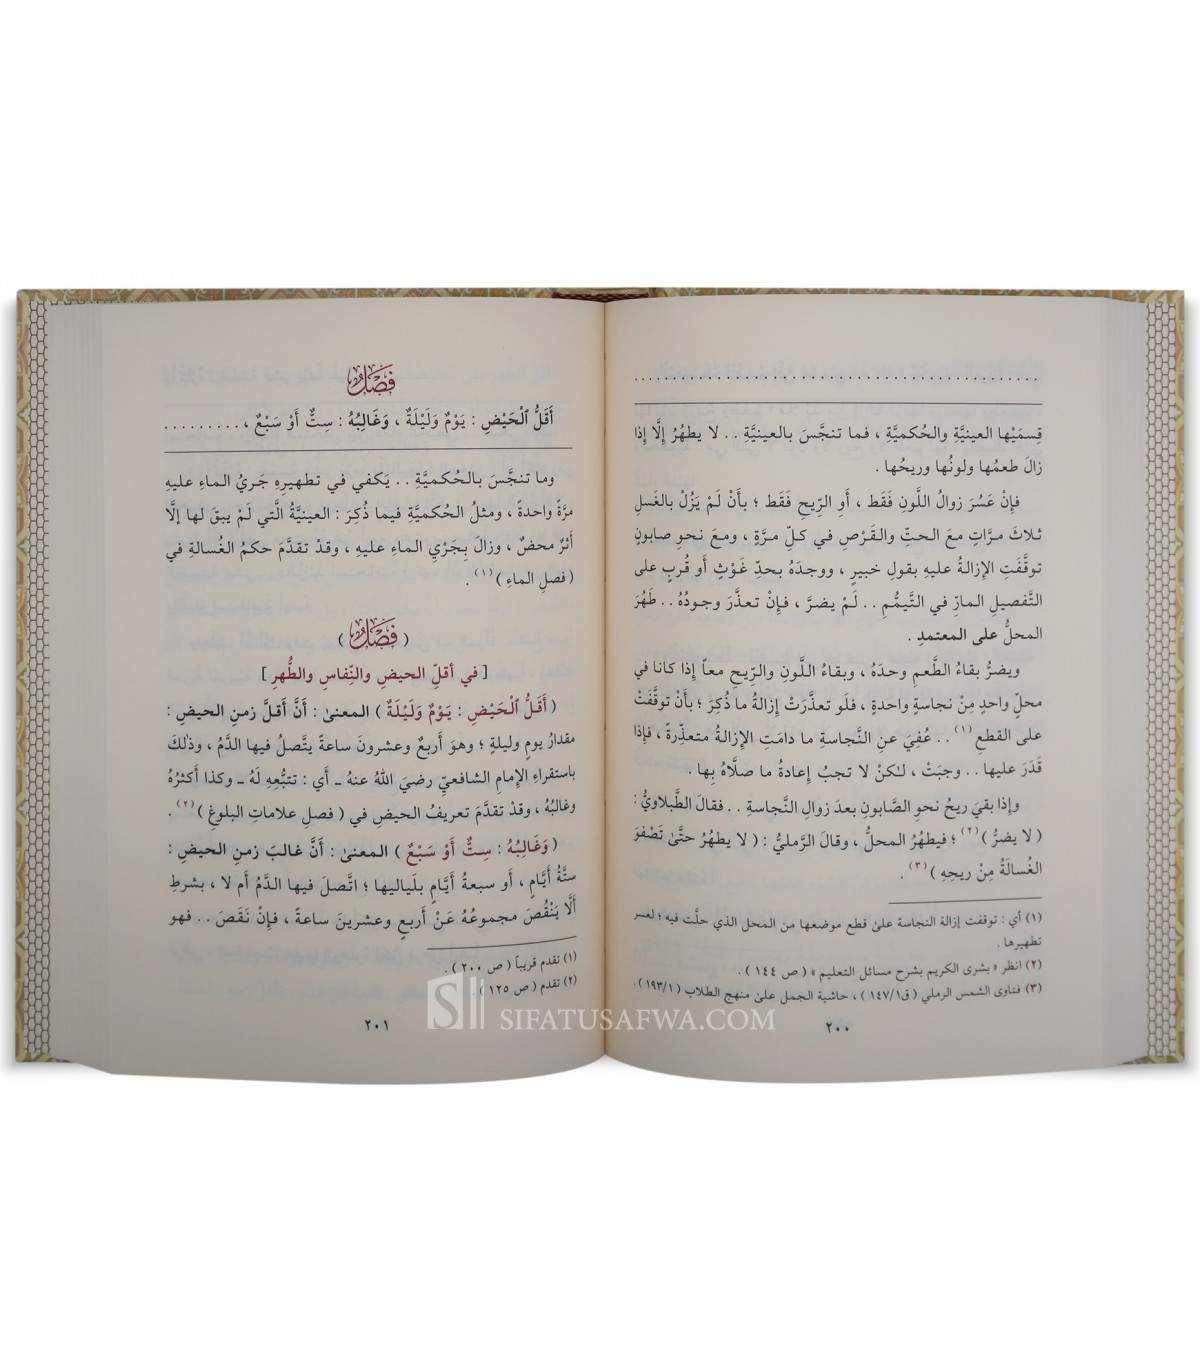 . . . . . . . . . . . . . . . . . . . . . . . . . . . . . . . . . . . . . . . . . . . . . . . .
قِسمَيْها العينيَّةِ والحُكميَّةِ ، فما تنجَّسَ بالعينيَّةِ . . لا يطهُرُ إِلَّا إِذا
زالَ طعمُها ولونُها وريحُها .
فإِنْ عَسُرَ زوالُ اللَّونِ فَقَط ، أَوِ الرِّيحِ فَقَط ؛ بأَنْ لَمْ يَزُلْ بالغَسلِ
ثـلاثَ مـرَّاتٍ مـعَ الـحتِّ والـقَـرْصِ في كـلِّ مـرَّةٍ ، ومـعَ نـحوِ صابـونٍ
توقَّفَتِ الإِزالةُ عليهِ بقولِ خبيرٍ ، ووجدَهُ بحدِّ غَوْثٍ أَو قُربٍ على
التَّفصيلِ المارِّ في التَّيمُّمِ . . لَمْ يضرَّ ، فإِنْ تعذَّرَ وجودُهُ . . طَهُرَ
المحلُّ على المعتمدِ .
ويضرُّ بقاءُ الطَّعمِ وحدَهُ ، وبقاءُ اللَّونِ والرِّيحِ معاً إِذا كانا في
محلٍّ واحدٍ مِنْ نجاسةٍ واحدةٍ ، فلَو تعذَّرَتْ إِزالةُ ما ذُكِرَ ؛ بأَنْ توقَّفَتْ
على القطعِ (١) . . عُفِيَ عنِ النَّجاسةِ ما دامَتِ الإِزالةُ متعذِّرةً ، فإِذا
قَدَرَ عليها . . وجبَتْ ، لـٰكنْ لا تجبُ إِعادةُ ما صلَّاهُ بِها .
وإِذا بقيَ ريحُ نحوِ الصَّابونِ بعدَ زوالِ النَّجاسةِ . . فقالَ الطَّبلاويُّ :
( لا يضرُّ ) (٢) ؛ فيطهُرُ المحلُّ ، وقالَ الرَّمليُّ : ( لا يطهُرُ حتَّىٰ تَصْفوَ
الغُسالةُ مِنْ ريحِهِ ) (٣) .
(١) أي : توقفت إزالة النجاسة علىٰ قطع موضعها من المحل الذي حلَّت فيه ؛ لعسر
تطهيرها .
(٢) انظر « بشرى الكريم بشرح مسائل التعليم » ( ص ١٤٤ ) .
(٣) فتاوى الشمس الرملي ( ق١/١٤٧ ) ، حاشية الجمل علىٰ منهج الطلاب ( ١/١٩٣ ) .
٢٠٠
فَصْلٌ
أَقَلُّ ٱلْحَيْضِ : يَوْمٌ وَلَيْلَةٌ ، وَغَالِبُهُ : سِتٌّ أَوْ سَبْعٌ ، . . . . . . . . .
وما تنجَّسَ بالـحُكميَّةِ . . يَكفي في تطهيرِهِ جَريُ الماءِ عليهِ
مرَّةً واحدةً ، ومثلُ الحُكميَّةِ فيما ذُكِرَ : العينيَّةُ الَّتي لَمْ يبقَ لها إِلَّا
أَثرٌ محضٌ ، وزالَ بِجَرْيِ الماءِ عليهِ ، وقدْ تقدَّمَ حكمُ الغُسالةِ في
( فصلِ الماءِ ) (١) .
( فَصْلٌ )
[ في أقلِّ الحيضِ والنِّفاسِ والطُّهرِ ]
( أَقَلُّ ٱلْحَيْضِ : يَوْمٌ وَلَيْلَةٌ ) المعنىٰ : أَنَّ أَقلَّ زمنِ الحيضِ :
مقدارُ يومٍ وليلةٍ ؛ وهوَ أَربعٌ وعشرونَ ساعةً يتَّصلُ فيها الدَّمُ ، وذٰلكَ
باستقراءِ الإِمامِ الشافعيِّ رضيَ اللهُ عنهُ ـ أَي : تتبُّعِهِ لَهُ ـ وكذا أَكثرُهُ
وغالبُهُ ، وقدْ تقدَّمَ تعريفُ الحيضِ في ( فصلِ علاماتِ البلوغِ ) (٢) .
( وَغَالِبُهُ : سِتٌّ أَوْ سَبْعٌ ) المعنىٰ : أَنَّ غالبَ زمنِ الحيضِ :
ستَّةُ أَيَّامٍ ، أَو سبعةُ أَيَّامٍ بلَياليها ؛ اتَّصلَ فيها الدَّمُ أَم لا ، بشرطِ
أَلَّا يَنْقُصَ مجموعُهُ عَنْ أَربعٍ وعشرينَ ساعةً ، فإِنْ نَقَصَ . . فهو
(١) تقدم قريباً ( ص ٢٠٠ ) .
(٢) تقدم ( ص ١٢٥ ) .
٢٠١
SIFATUSAFWA.COM